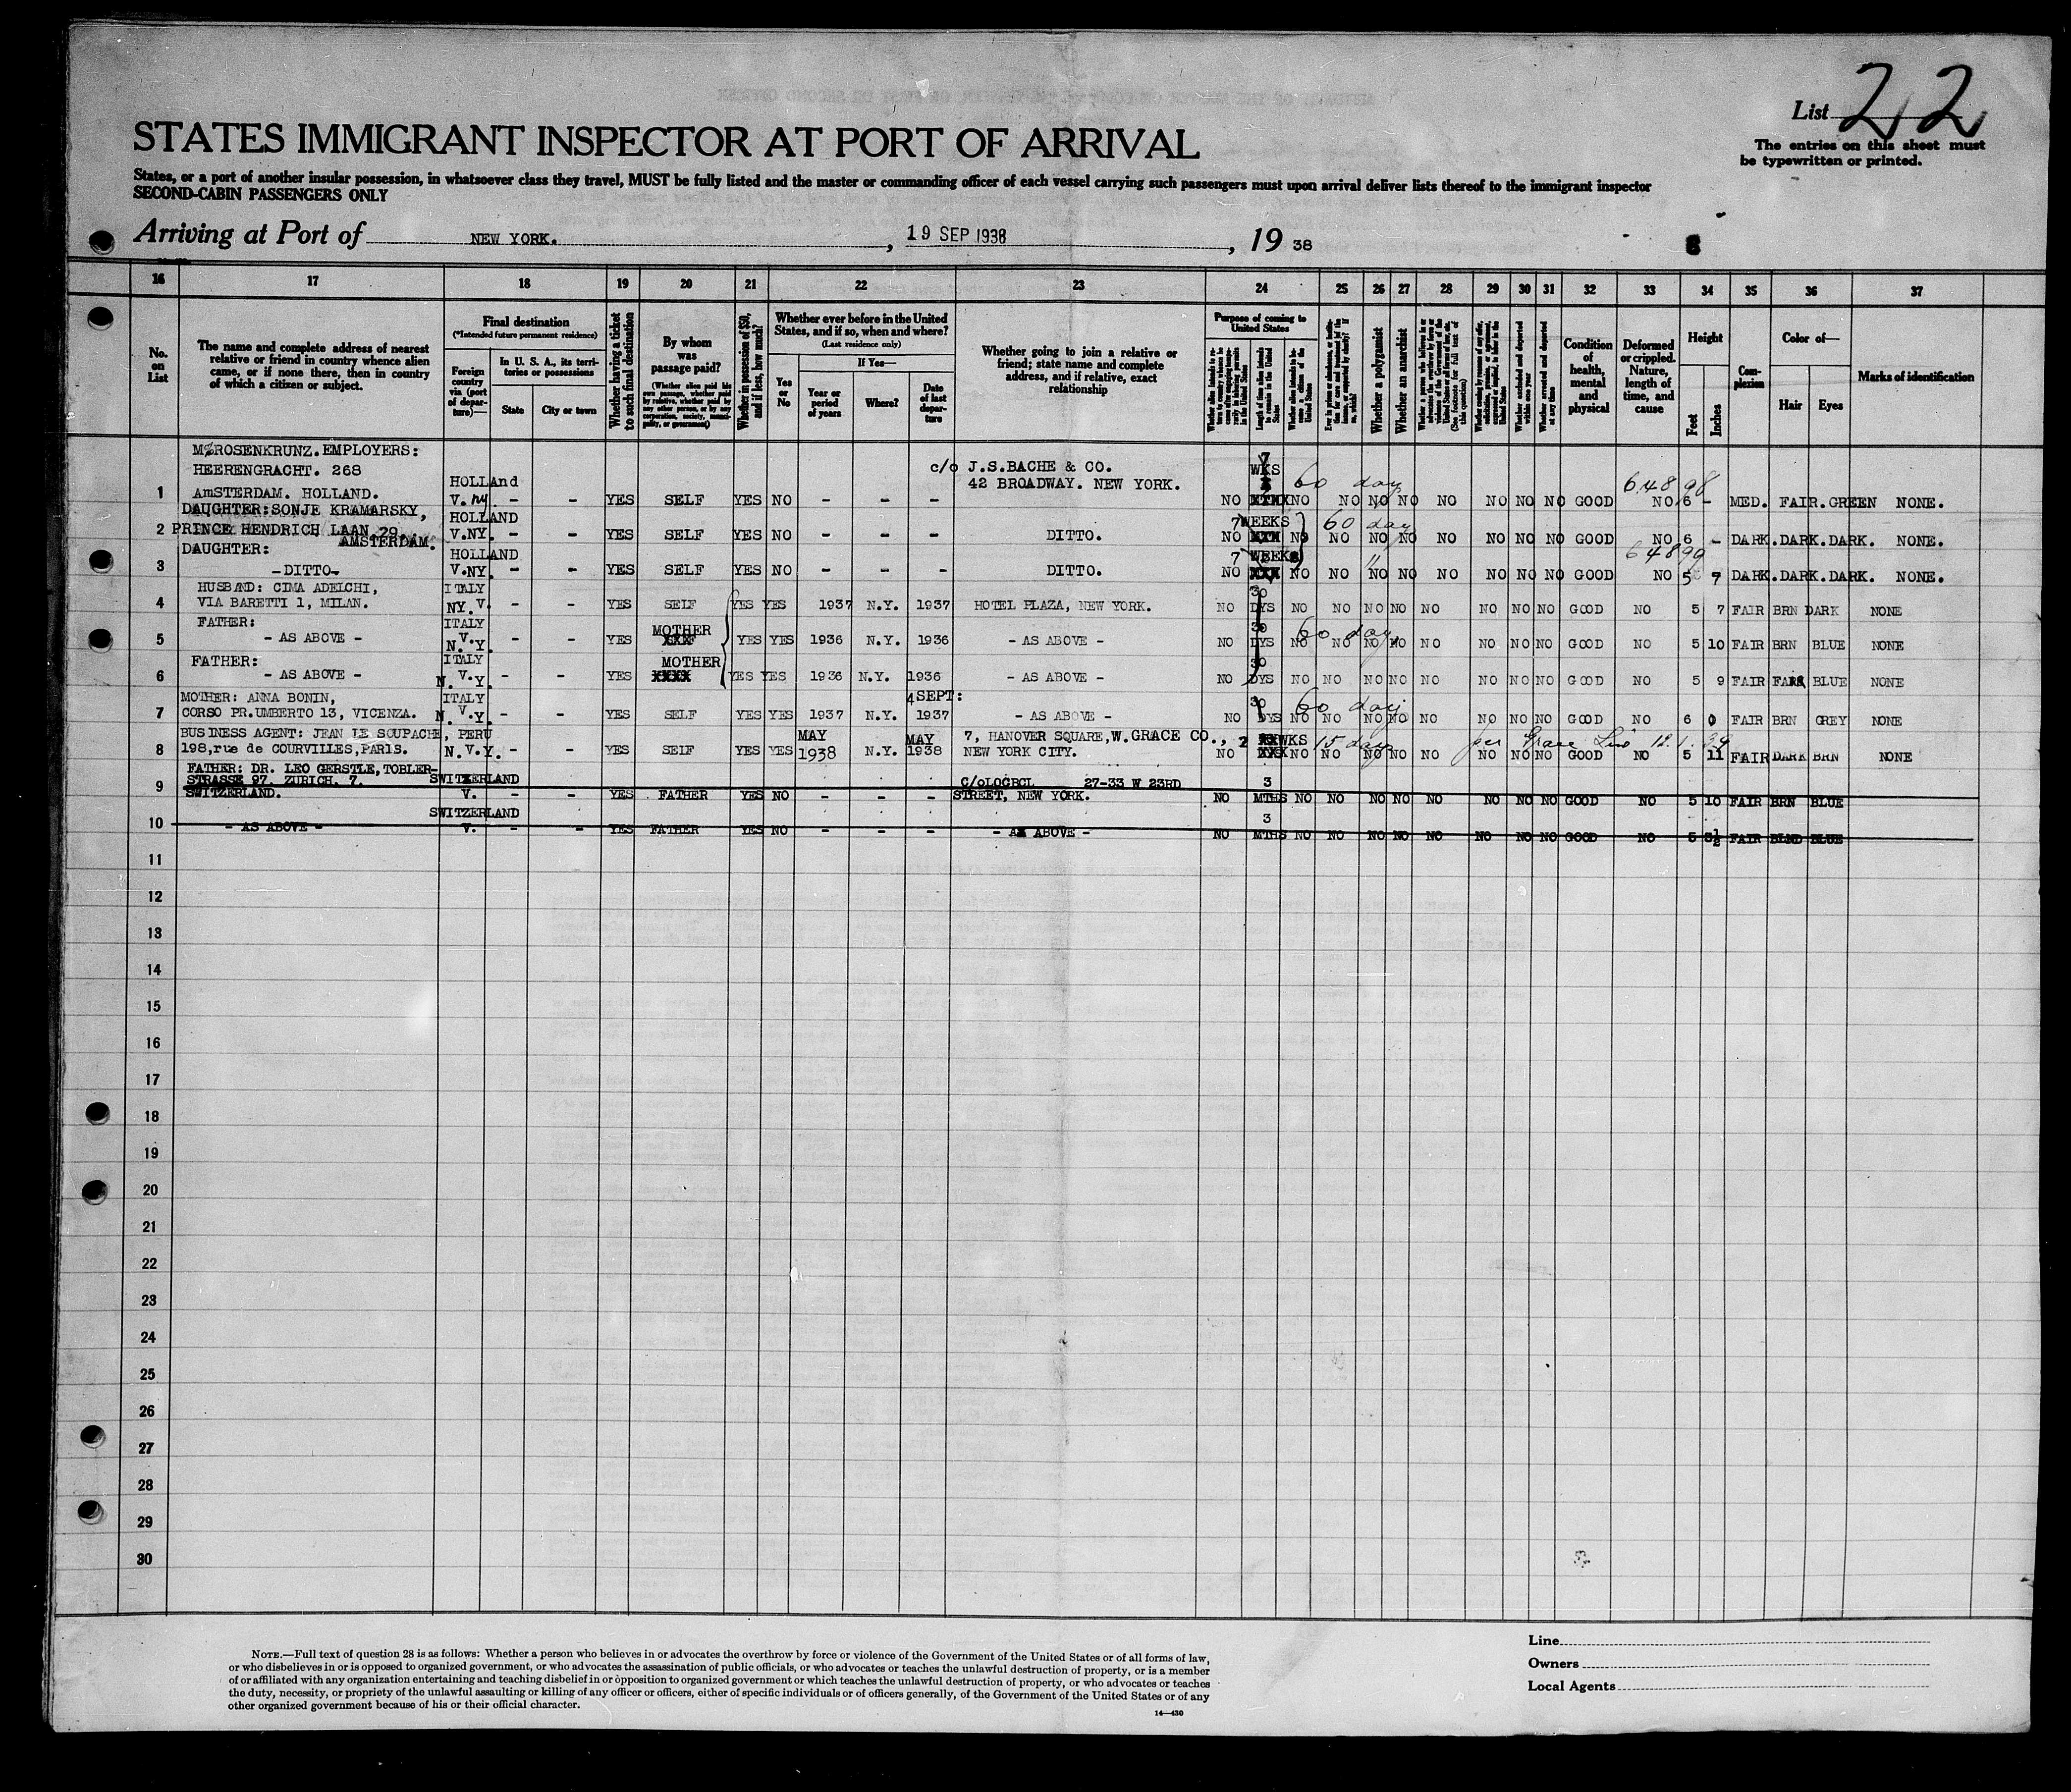 List 22
The entries on this sheet must
be typewritten or printed.
STATES IMMIGRANT INSPECTOR AT PORT OF ARRIVAL
States, or a port of another insular possession, in whatsoever class they travel, MUST be fully listed and the master or commanding officer of each vessel carrying such passengers must upon arrival deliver lists thereof to the immigrant inspector
SECOND-CABIN PASSENGERS ONLY
Arriving at Port of NEW YORK. , 19 SEP 1938 , 19 38
8
16 17 18 19 20 21 22 23 24 25 26 27 28 29 30 31 32 33 34 35 36 37
No. on List
The name and complete address of nearest
relative or friend in country whence alien
came, or if none there, then in country
of which a citizen or subject.
Final destination
(*Intended future permanent residence)
Foreign country via (port of departure)—
In U. S. A., its territories or possessions
State
City or town
Whether having a ticket to such final destination
By whom was passage paid?
(Whether alien paid his own passage, whether paid by relative, whether paid by any other person, or by any corporation, society, municipality, or government)
Whether in possession of $50, and if less, how much?
Whether ever before in the United
States, and if so, when and where?
(Last residence only)
Yes or No
If Yes—
Year or period of years
Where?
Date of last departure
Whether going to join a relative or
friend; state name and complete
address, and if relative, exact
relationship
Purpose of coming to United States
Length of time alien intends to remain in the United States
Whether a polygamist
Whether an anarchist
Whether excluded and deported within one year
Whether arrested and deported at any time
Condition of health, mental and physical
Deformed or crippled. Nature, length of time, and cause
Height
Feet
Inches
Complexion
Color of—
Hair
Eyes
Marks of identification
M ROSENKRUNZ.EMPLOYERS:
HEERENGRACHT. 268 c/o J.S.BACHE & CO. 7 WKS
HOLLAnd 42 BROADWAY. NEW YORK. 60 day 64898
1 AmSTERDAM. HOLLAND. V. ny. - - YES SELF YES NO - - - NO NO NO NO NO NO NO NO NO GOOD NO 6 - MED. FAIR.GREEN NONE.
DAUGHTER:SONJE KRAMARSKY, HOLLAND 7 WEEKS 60 day
2 PRINCE HENDRICH LAAN 29. V.NY. - - YES SELF YES NO - - - DITTO. NO NO NO NO NO NO NO NO NO GOOD NO 6 - DARK.DARK.DARK. NONE.
AMSTERDAM.
DAUGHTER: HOLLAND 7 WEEKS " 64899
3 -DITTO- V.NY. - - YES SELF YES NO - - - DITTO. NO NO NO NO NO NO NO NO NO GOOD NO 5 7 DARK.DARK.DARK. NONE.
HUSBAND: CIMA ADELCHI, ITALY 30
4 VIA BARETTI 1, MILAN. NY.V. - - YES SELF YES YES 1937 N.Y. 1937 HOTEL PLAZA, NEW YORK. NO DYS NO NO NO NO NO NO NO NO GOOD NO 5 7 FAIR BRN DARK NONE
FATHER: ITALY MOTHER 30 60 day
5 - AS ABOVE - N.V.Y. - - YES XXXF YES YES 1936 N.Y. 1936 - AS ABOVE - NO DYS NO NO NO NO NO NO NO NO GOOD NO 5 10 FAIR BRN BLUE NONE
FATHER: ITALY MOTHER 30
6 - AS ABOVE - N.V.Y. - - YES XXXX YES YES 1936 N.Y. 1936 - AS ABOVE - NO DYS NO NO NO NO NO NO NO NO GOOD NO 5 9 FAIR FAIR BLUE NONE
MOTHER: ANNA BONIN, ITALY 4 SEPT: 30 60 day
7 CORSO PR.UMBERTO 13, VICENZA. N.V.Y. - - YES SELF YES YES 1937 N.Y. 1937 - AS ABOVE - NO DYS NO NO NO NO NO NO NO NO GOOD NO 6 0 FAIR BRN GREY NONE
BUSINESS AGENT: JEAN LE SOUPACHE, PERU MAY MAY 7, HANOVER SQUARE,W.GRACE CO., 2 WKS 15 day per Grace Line 12.1.39
8 198,rue de COURVILLES,PARIS. N.V.Y. - - YES SELF YES YES 1938 N.Y. 1938 NEW YORK CITY. NO XXX NO NO NO NO NO NO NO NO GOOD NO 5 11 FAIR DARK BRN NONE
FATHER: DR. LEO GERSTLE,TOBLER-
STRASSE 97. ZURICH. 7. SWITZERLAND C/o 27-33 W 23RD 3
9 SWITZERLAND. V. - - YES FATHER YES NO - - - STREET, NEW YORK. NO MTHS NO NO NO NO NO NO NO NO GOOD NO 5 10 FAIR BRN BLUE
SWITZERLAND 3
10 - AS ABOVE - V. - - YES FATHER YES NO - - - - AS ABOVE - NO MTHS NO NO NO NO NO NO NO NO GOOD NO 5 3½ FAIR BLND BLUE
11
12
13
14
15
16
17
18
19
20
21
22
23
24
25
26
27
28
29
30
NOTE.—Full text of question 28 is as follows: Whether a person who believes in or advocates the overthrow by force or violence of the Government of the United States or of all forms of law,
or who disbelieves in or is opposed to organized government, or who advocates the assassination of public officials, or who advocates or teaches the unlawful destruction of property, or is a member
of or affiliated with any organization entertaining and teaching disbelief in or opposition to organized government or which teaches the unlawful destruction of property, or who advocates or teaches
the duty, necessity, or propriety of the unlawful assaulting or killing of any officer or officers, either of specific individuals or of officers generally, of the Government of the United States or of any
other organized government because of his or their official character.
14—430
Line
Owners
Local Agents